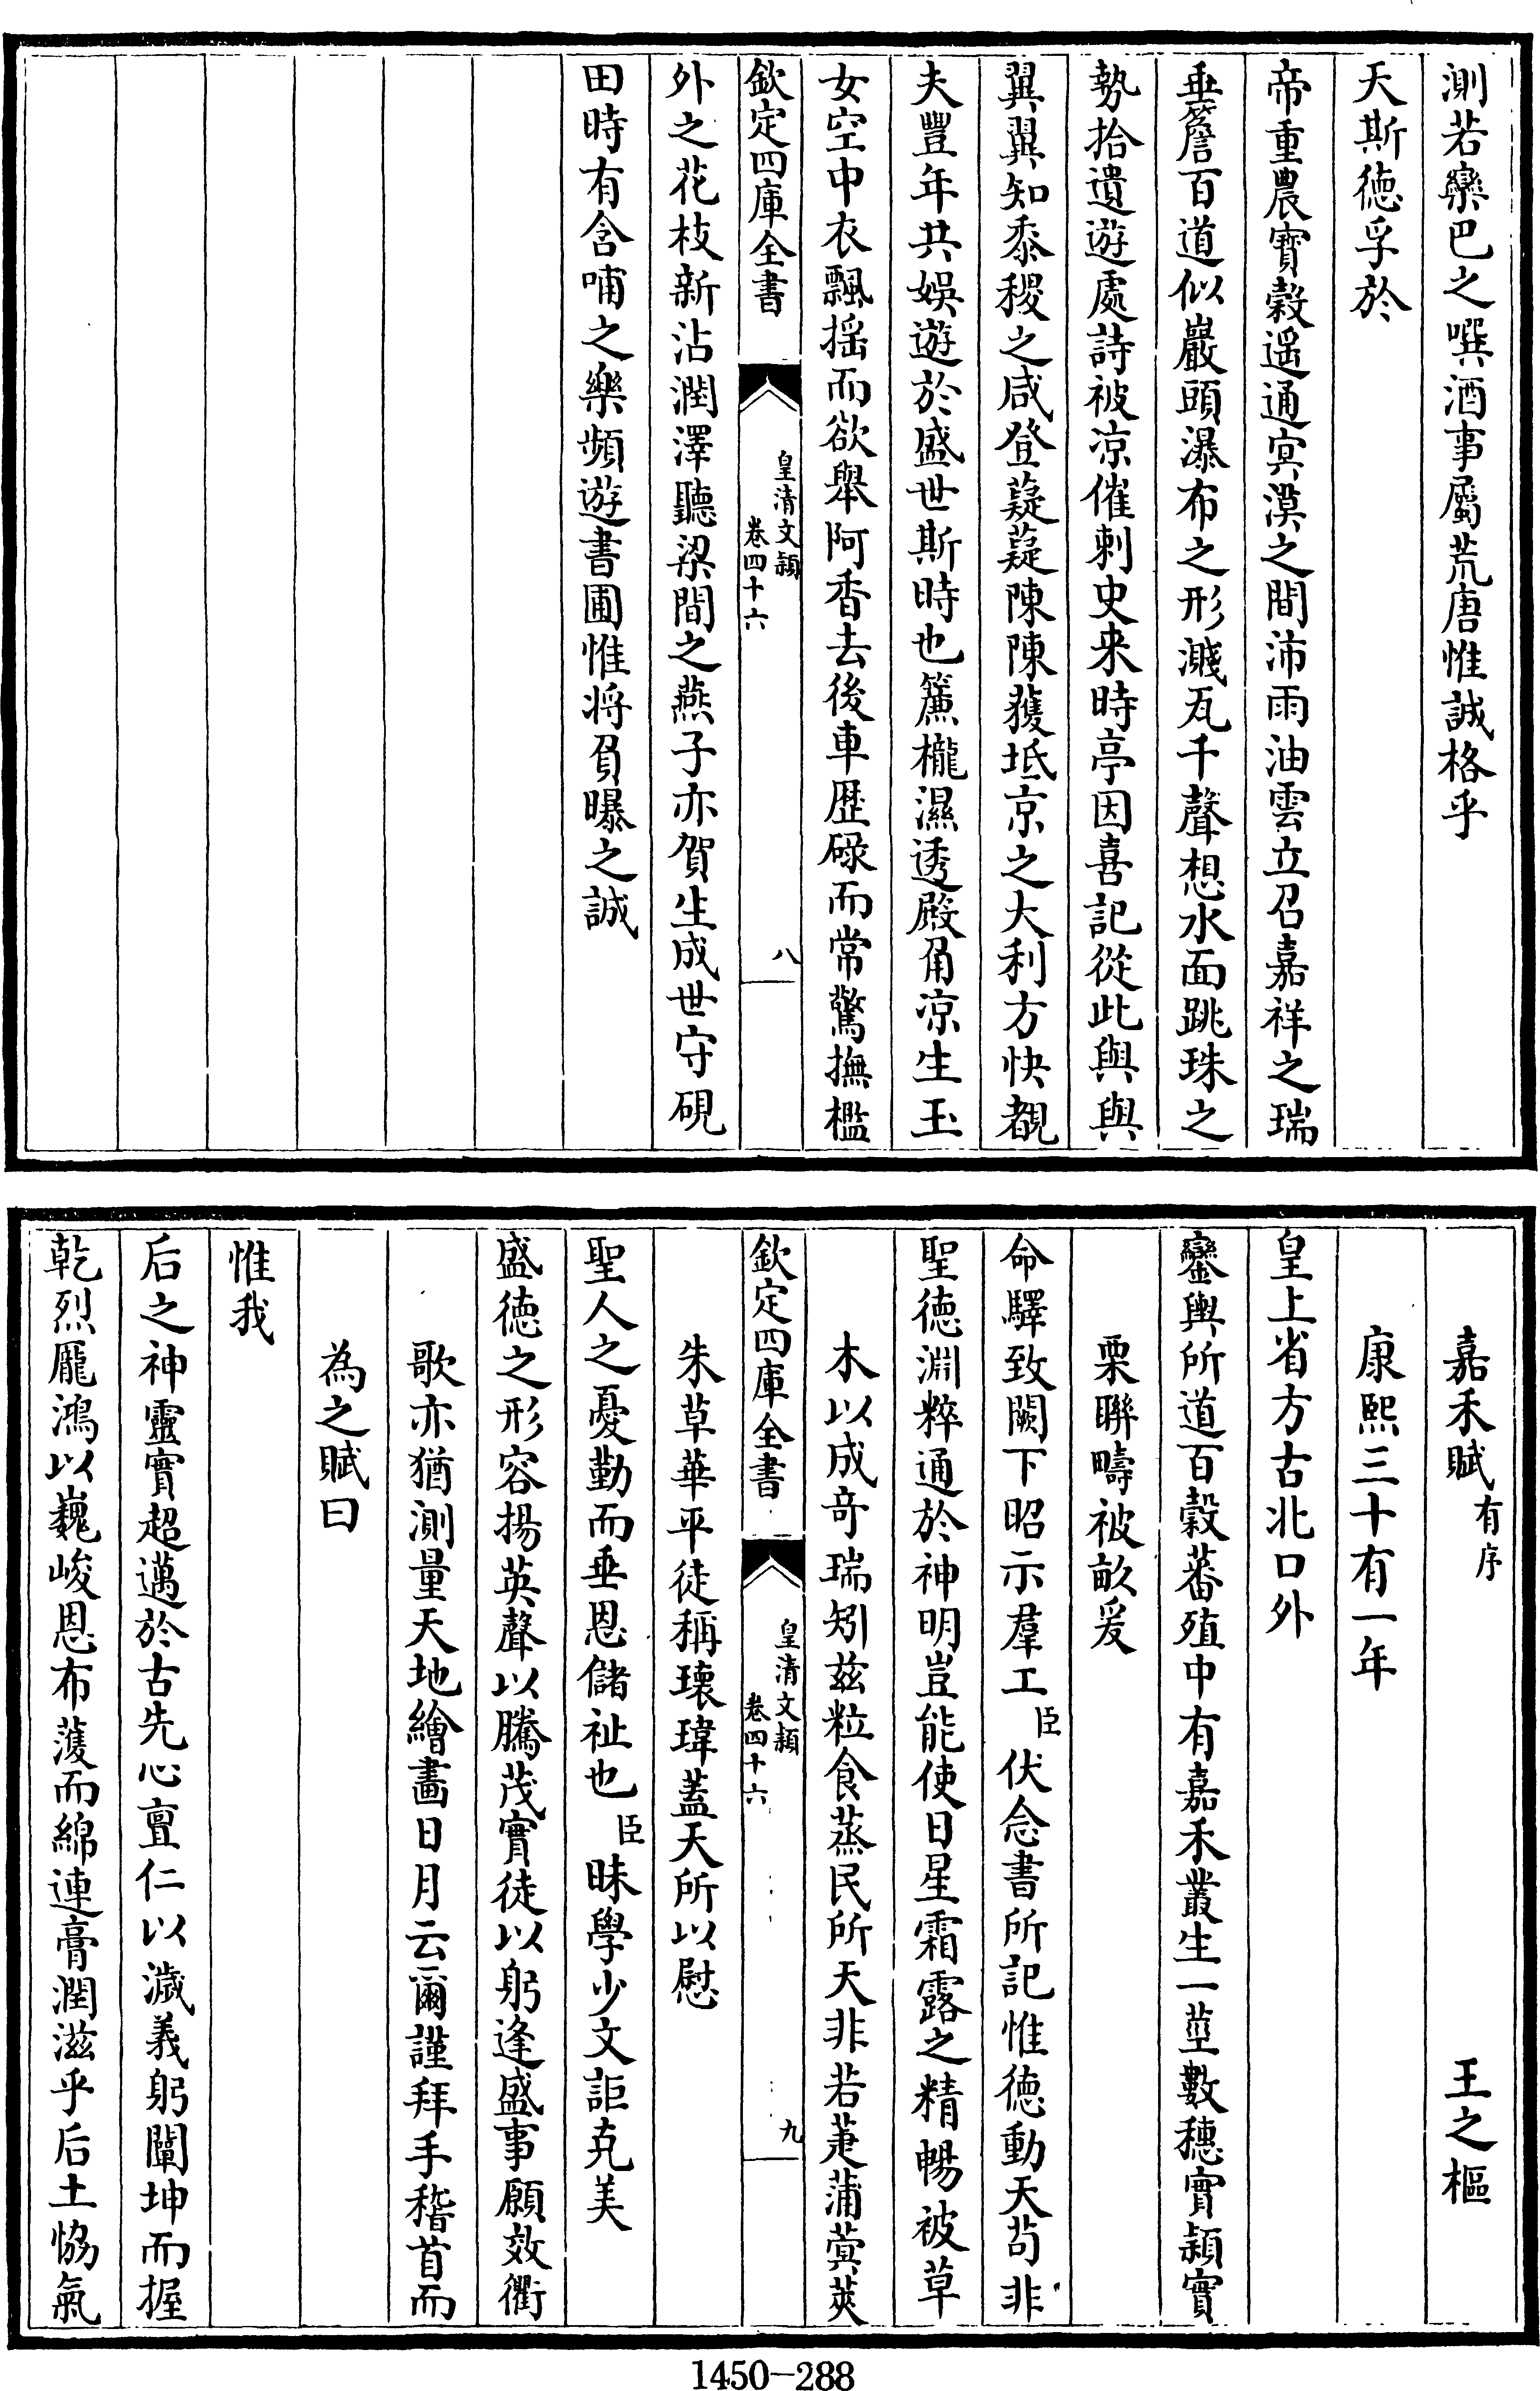 測若欒巴之噀酒事屬荒唐惟誠格乎
天斯徳孚於
帝重農寳榖遥通冥漠之間沛雨油雲立召嘉祥之瑞
垂簷百道似巖頭瀑布之形濺瓦千聲想水面跳珠之
勢拾遺遊處詩被凉催刺史来時亭因喜記從此與與
翼翼知黍稷之咸登薿薿陳陳獲坻京之大利方快覩
夫豐年共娱遊於盛世斯時也簾櫳濕透殿角凉生玉
女空中衣飄揺而欲舉阿香去後車歴碌而常驚撫檻
欽定四庫全書
皇清文穎
卷四十六
八
外之花枝新沾潤澤聽梁間之燕子亦賀生成世守硯
田時有含哺之樂頻遊書圃惟将負曝之誠
嘉禾賦有序 王之樞
康熙三十有一年
皇上省方古北口外
鑾輿所道百榖蕃殖中有嘉禾叢生一莖數穗實穎實
栗聨疇被畝爰
命驛致闕下昭示羣工臣伏念書所記惟徳動天茍非
聖徳淵粹通於神明豈能使日星霜露之精暢被草
木以成竒瑞矧兹粒食蒸民所天非若萐蒲蓂莢
欽定四庫全書
皇清文穎
卷四十六
九
朱草華平徒稱瓌瑋蓋天所以慰
聖人之憂勤而垂恩儲祉也臣昧學少文詎克美
盛徳之形容揚英聲以騰茂實徒以躬逢盛事願效衢
歌亦猶測量天地繪畫日月云爾謹拜手稽首而
為之賦曰
惟我
后之神靈實超邁於古先心亶仁以濊義躬闡坤而握
乾烈龎鴻以巍峻恩布濩而綿連膏潤滋乎后土恊氣
1450-288